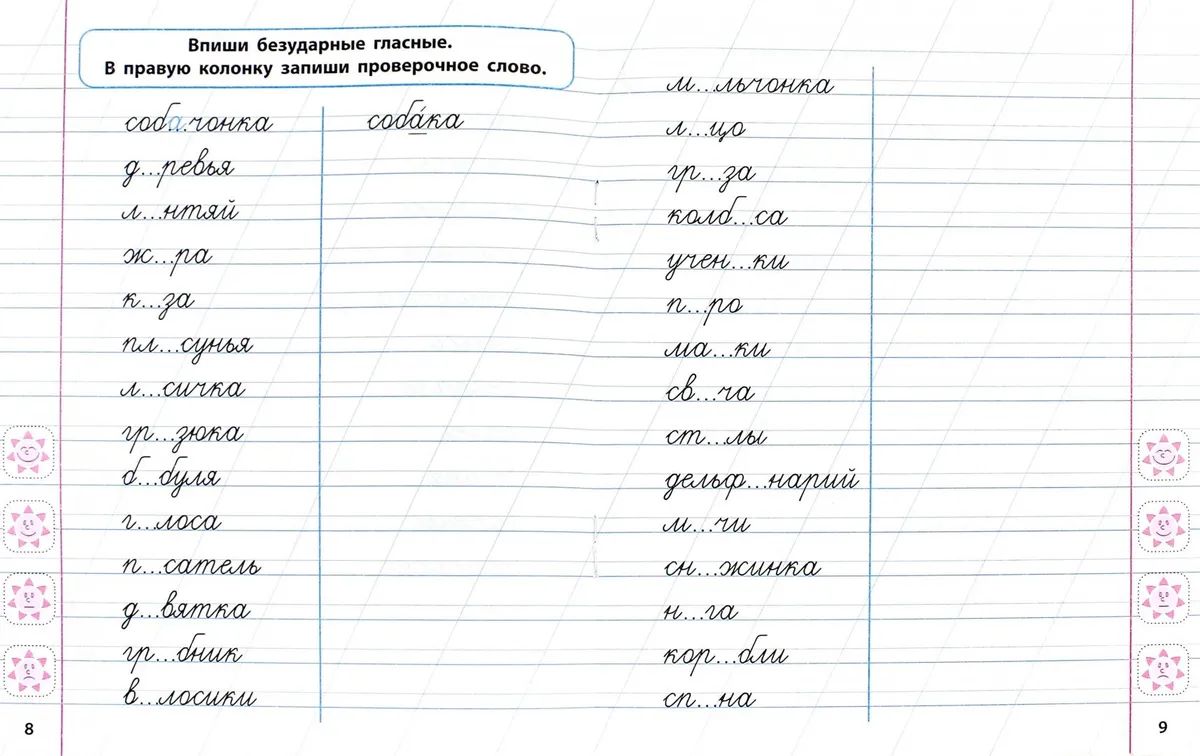 Впиши безударные гласные.
В правую колонку запиши проверочное слово.
соба.чонка соба́ка
д...ревья
л...нтяй
ж...ра
к...за
пл...сунья
л...сичка
гр...зюка
б...буля
г...лоса
п...сатель
д...вятка
гр...бник
в...лосики
8
м...льчонка
л...цо
гр...за
колб...са
учен...ки
п...ро
ма...ки
св...ча
ст...лы
дельф...нарий
м...чи
сн...жинка
н...га
кор...бли
сп...на
9